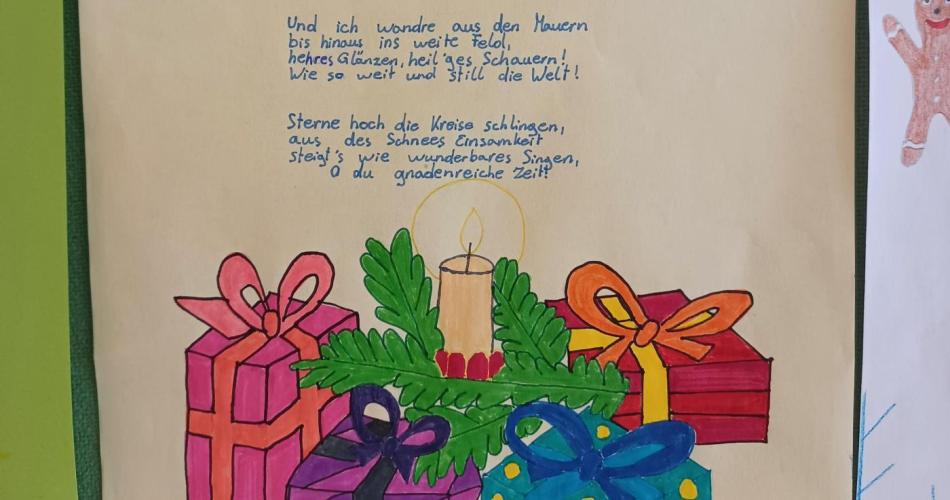 Und ich wandre aus den Mauern
bis hinaus ins weite Feld,
hehres Glänzen, heil'ges Schauern!
Wie so weit und still die Welt!
Sterne hoch die Kreise schlingen,
aus des Schnees Einsamkeit
steigt's wie wunderbares Singen,
O du gnadenreiche Zeit!